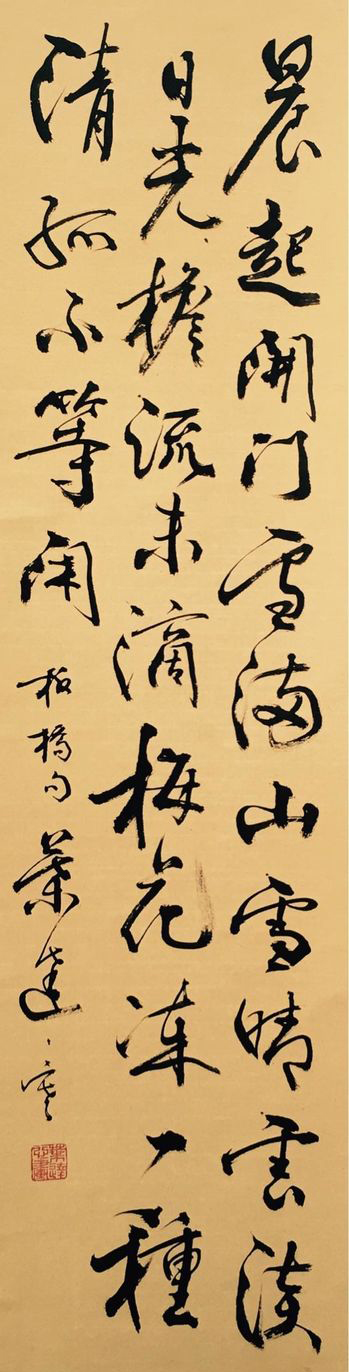 晨起開门雪满山雪晴雲淡
日光檐流未滴梅花凍一種
清孤不等闲
板橋句葉達